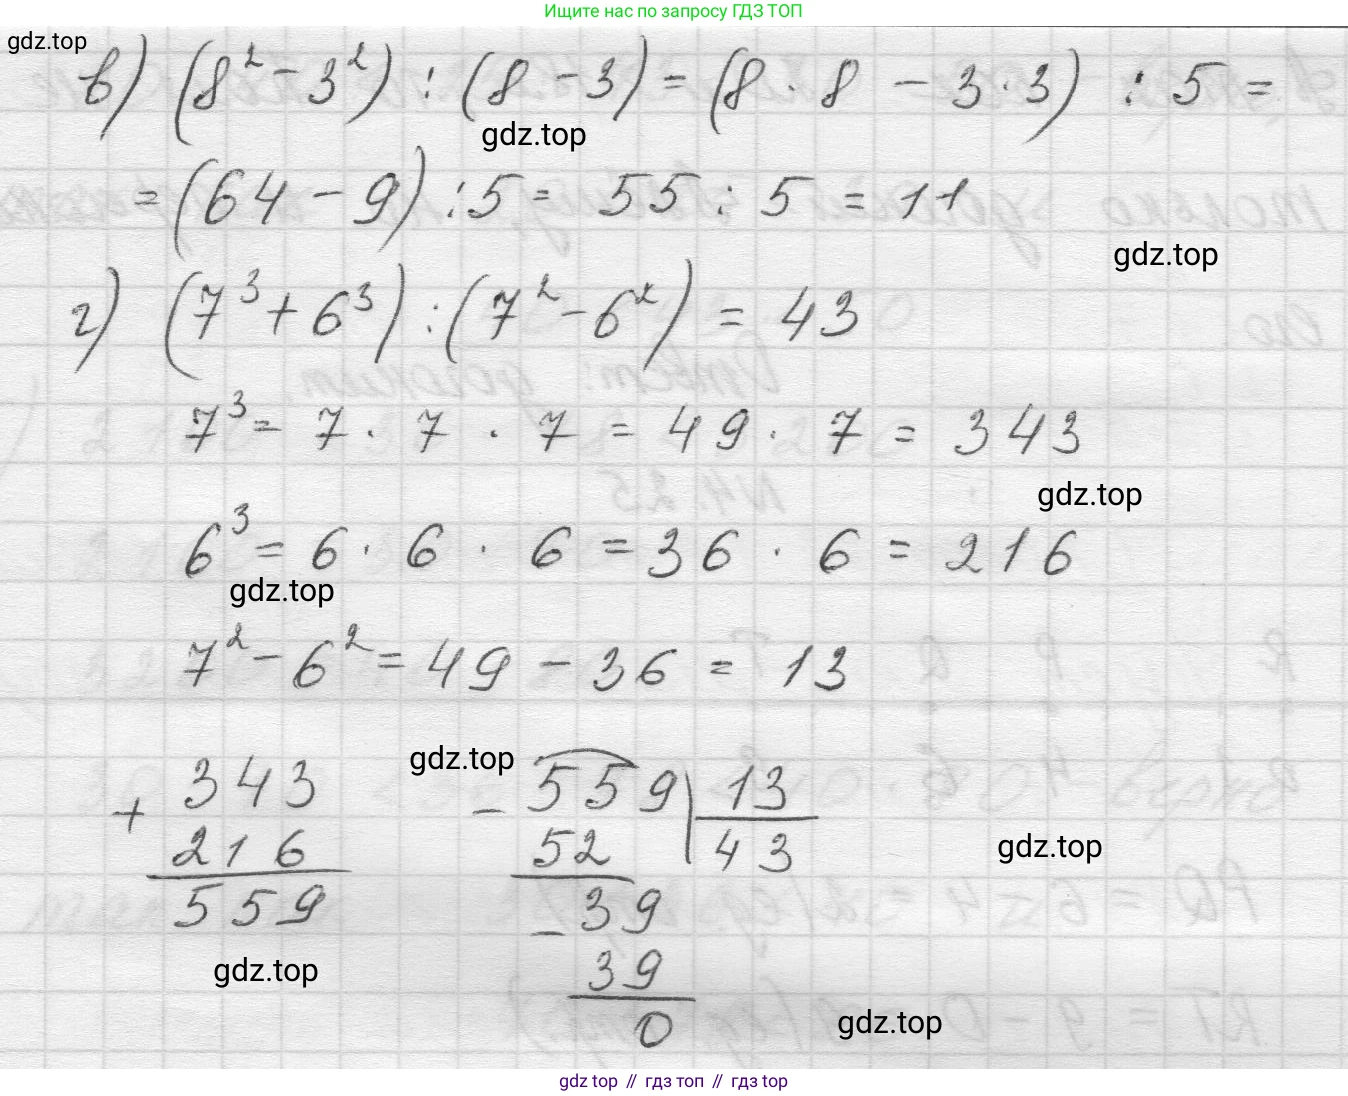 Ищите нас по запросу ГДЗ ТОП
gdz.top
в) (8² - 3²) : (8 - 3) = (8 · 8 - 3 · 3) : 5 =
gdz.top
= (64 - 9) : 5 = 55 : 5 = 11
gdz.top
г) (7³ + 6³) : (7² - 6²) = 43
7³ = 7 · 7 · 7 = 49 · 7 = 343
gdz.top
6³ = 6 · 6 · 6 = 36 · 6 = 216
gdz.top
7² - 6² = 49 - 36 = 13
gdz.top
+ 343
216
559
- 559 | 13
52 43
gdz.top
- 39
39
0
gdz.top
gdz.top
gdz top // гдз топ // гдз top